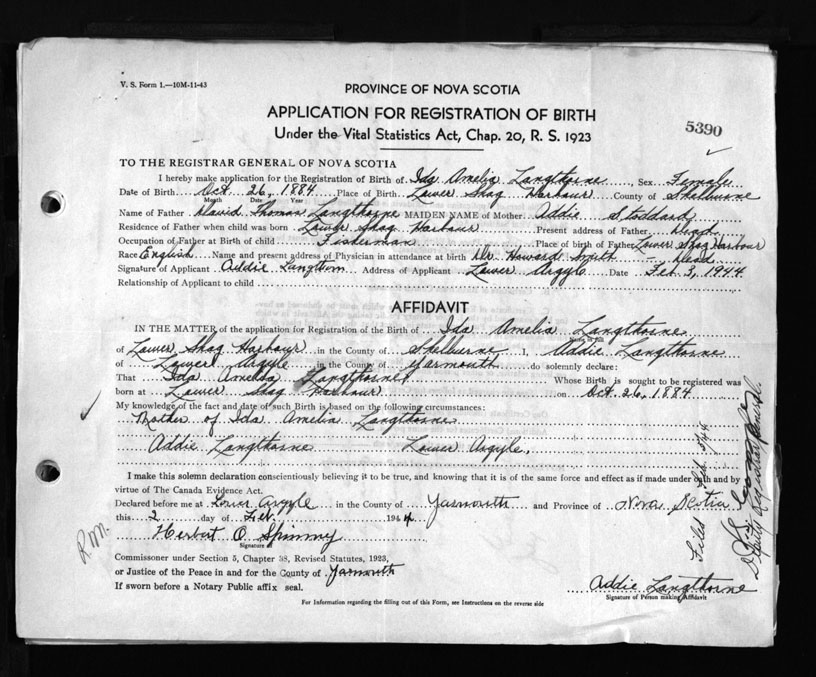 V. S. Form 1.—10M-11-43
PROVINCE OF NOVA SCOTIA
APPLICATION FOR REGISTRATION OF BIRTH
5390
Under the Vital Statistics Act, Chap. 20, R. S. 1923
TO THE REGISTRAR GENERAL OF NOVA SCOTIA
I hereby make application for the Registration of Birth of Ida Amelia Langthorne, Sex Female
Date of Birth Oct 26, 1884 Place of Birth Lower Shag Harbour County of Shelburne
Month Date Year
Name of Father David Thomas Langthorne MAIDEN NAME of Mother Addie Stoddard
Residence of Father when child was born Lower Shag Harbour Present address of Father Dead
Occupation of Father at Birth of child Fisherman Place of birth of Father Lower Shag Harbour
Race English Name and present address of Physician in attendance at birth Dr. Howard Smith - Dead
Signature of Applicant Addie Langthorn Address of Applicant Lower Argyle Date Feb 3, 1944
Relationship of Applicant to child
AFFIDAVIT
IN THE MATTER of the application for Registration of the Birth of Ida Amelia Langthorne
of Lower Shag Harbour in the County of Shelburne I, Addie Langthorne
of Lower Argyle in the County of Yarmouth do solemnly declare:
That Ida Amelia Langthorne Whose Birth is sought to be registered was
born at Lower Shag Harbour on Oct. 26, 1884
My knowledge of the fact and date of such Birth is based on the following circumstances:
Mother of Ida Amelia Langthorne
Addie Langthorne Lower Argyle.
I make this solemn declaration conscientiously believing it to be true, and knowing that it is of the same force and effect as if made under oath and by
virtue of The Canada Evidence Act.
Declared before me at Lower Argyle in the County of Yarmouth and Province of Nova Scotia
this 3 day of Feb. 1944
Herbert O Spinney
Signature of
Commissioner under Section 5, Chapter 38, Revised Statutes, 1923,
or Justice of the Peace in and for the County of Yarmouth
If sworn before a Notary Public affix seal.
Addie Langthorne
Signature of Person making Affidavit
For Information regarding the filling out of this Form, see Instructions on the reverse side
R.M.
Filed Feb.
Deputy Registrar General.